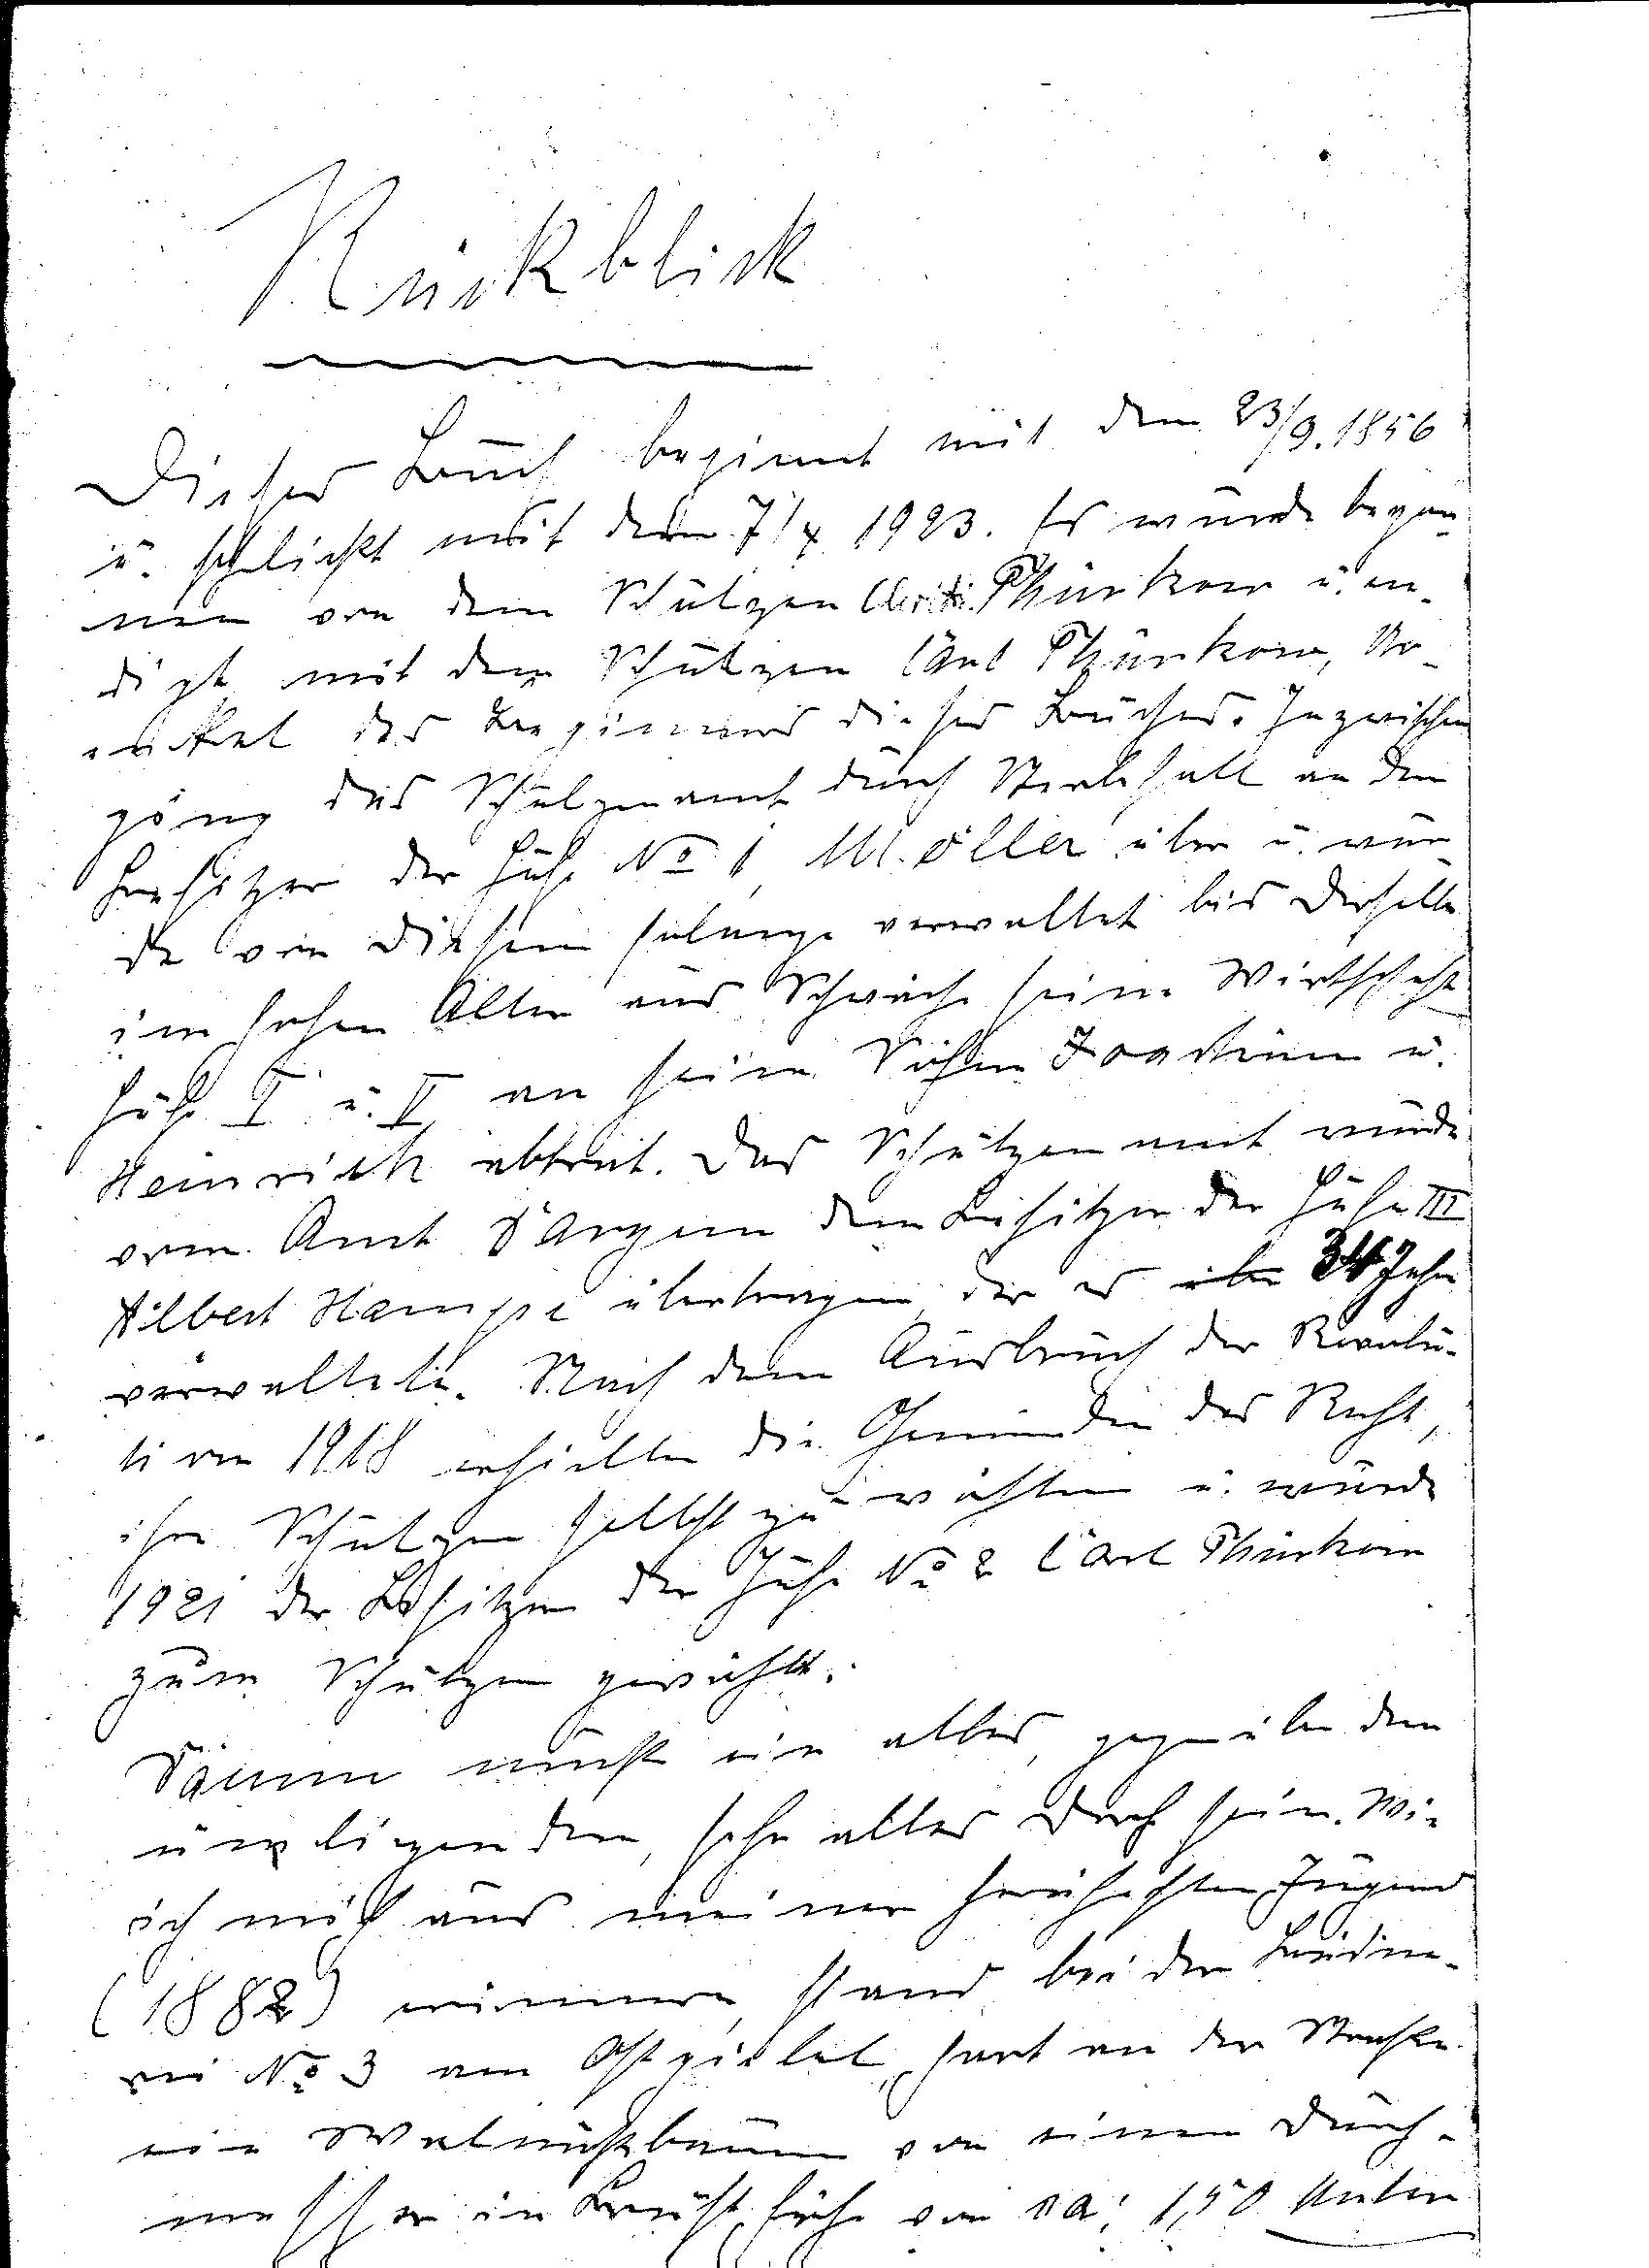 Rückblick
Dieses Buch beginnt mit dem 23/9. 1856
u. schließt mit dem 7/4 1923. Es wurde begon-
nen von dem Schulzen Christ. Thürkow u. en-
digt mit dem Schulzen Carl Thürkow, Ur-
enkel des Beginners dieses Buches. Inzwischen
ging das Schulzenamt durch Sterbefall an den
Besitzer der Hufe No 1, Möller über u. wur
de von diesem solange verwaltet bis derselbe
im hohen Alter aus Schwäche seine Wirtschaft
Hufe I u. V an seine Söhne Joachim u.
Heinrich abtrat. Das Schulzenamt wurde
vom Amt dem Besitzer der Hufe III
Albert Hampe übertragen, der es über 34 Jahre
verwaltete. Nach dem Ausbruch der Revolu-
tion 1918 erhielten die Gemeinden das Recht,
ihre Schulzen selbst zu wählen u. wurde
1921 der Besitzer der Hufe No 2 Carl Thürkow
zum Schulzen gewählt.
muß ein altes, gegenüber den
umliegenden, sehr altes Dorf sein. Wie
ich mich aus meiner frühesten Jugend
(1882) erinnere, stand bei der Büdne-
rei No 3 am Ostgiebel, hart an der Straße
ein Walnußbaum von einem Durch-
messer in Brusthöhe von ca: 1,50 Meter